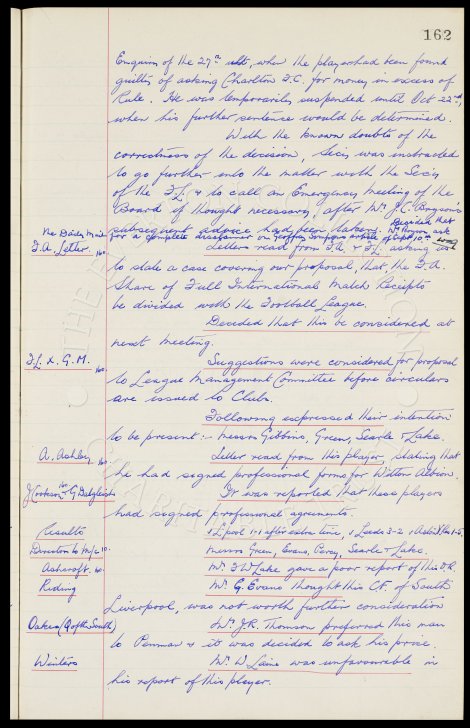 162
Enquiry of the 27th ult, when the player had been found
guilty of asking Charlton F.C. for money in excess of
Rule. He was temporarily suspended until Oct 22nd,
when his further sentence would be determined.
With the known doubts of the
correctness of the decision, Secy was instructed
to go further into the matter with the Secy
of the F.L. & to call an Emergency Meeting of the
Board if thought necessary, after Mr J.C. Bryson's
subsequent advice had been taken. Decided that
for a complete disclaimer on article of Sept 10th
F.A. Letter. Letters read from F.A. & F.L. asking
to state a case covering our proposal that the F.A.
Share of Full International Match Receipts
be divided with the Football League.
Decided that this be considered at
next meeting.
F.L. x. G.M. Suggestions were considered for proposal
to League Management Committee before circulars
are issued to Clubs.
Following expressed their intention
to be present :- Messrs Gibbins, Green, Searle & Lake.
A. Ashley. Letter read from this player, stating that
he had signed professional forms for Witton Albion.
J Cookson & G Dalgleish It was reported that these players
had signed professional agreements.
Results v L'pool 1-1 after extra time, v Leeds 3-2, v Aston Villa
Directors to M/c Messrs Green, Evans, Searle & Lake.
Ashcroft. Mr F W Lake gave a poor report of this O.R.
Riding Mr G. Evans thought this C.F. of South
Liverpool, was not worth further consideration
Oakes (Q of the South) Mr J.R. Thomson preferred this man
to Penman & it was decided to ask his price.
Winters Mr W Laine was unfavourable in
his report of this player.